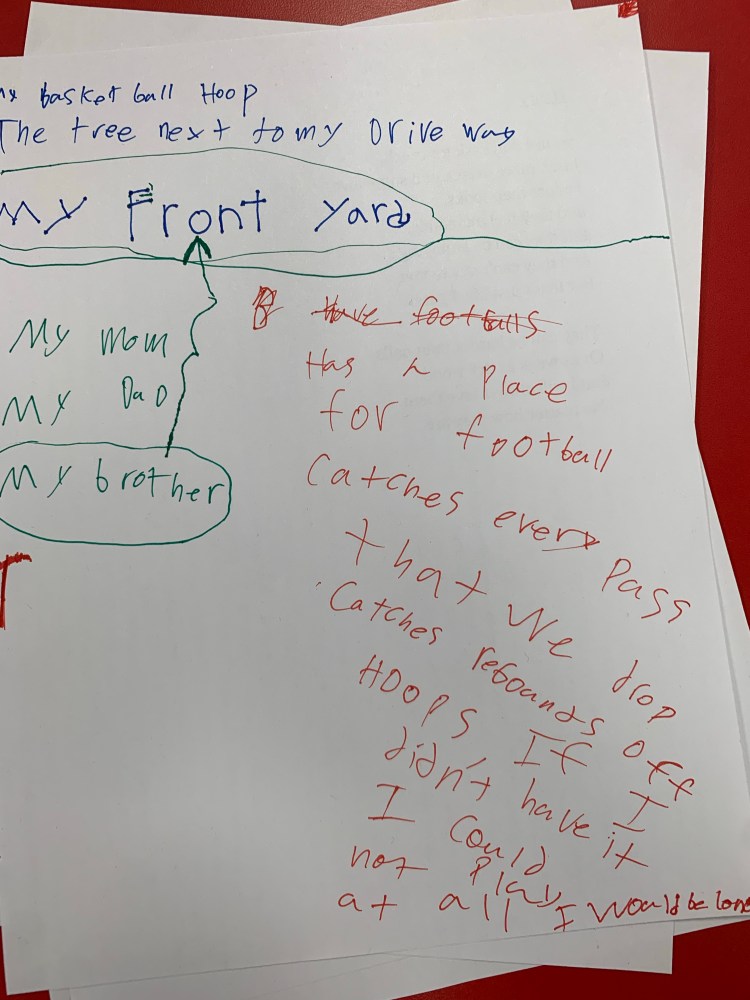 my basket ball Hoop
The tree next to my Drive way
My Front yard
My mom
My DaD
My brother
Have footballs
Has a Place
for football
Catches every Pass
that We drop
Catches rebounds off
HOOPS If I
didn't have it
I could
not Play
at all I would be lone